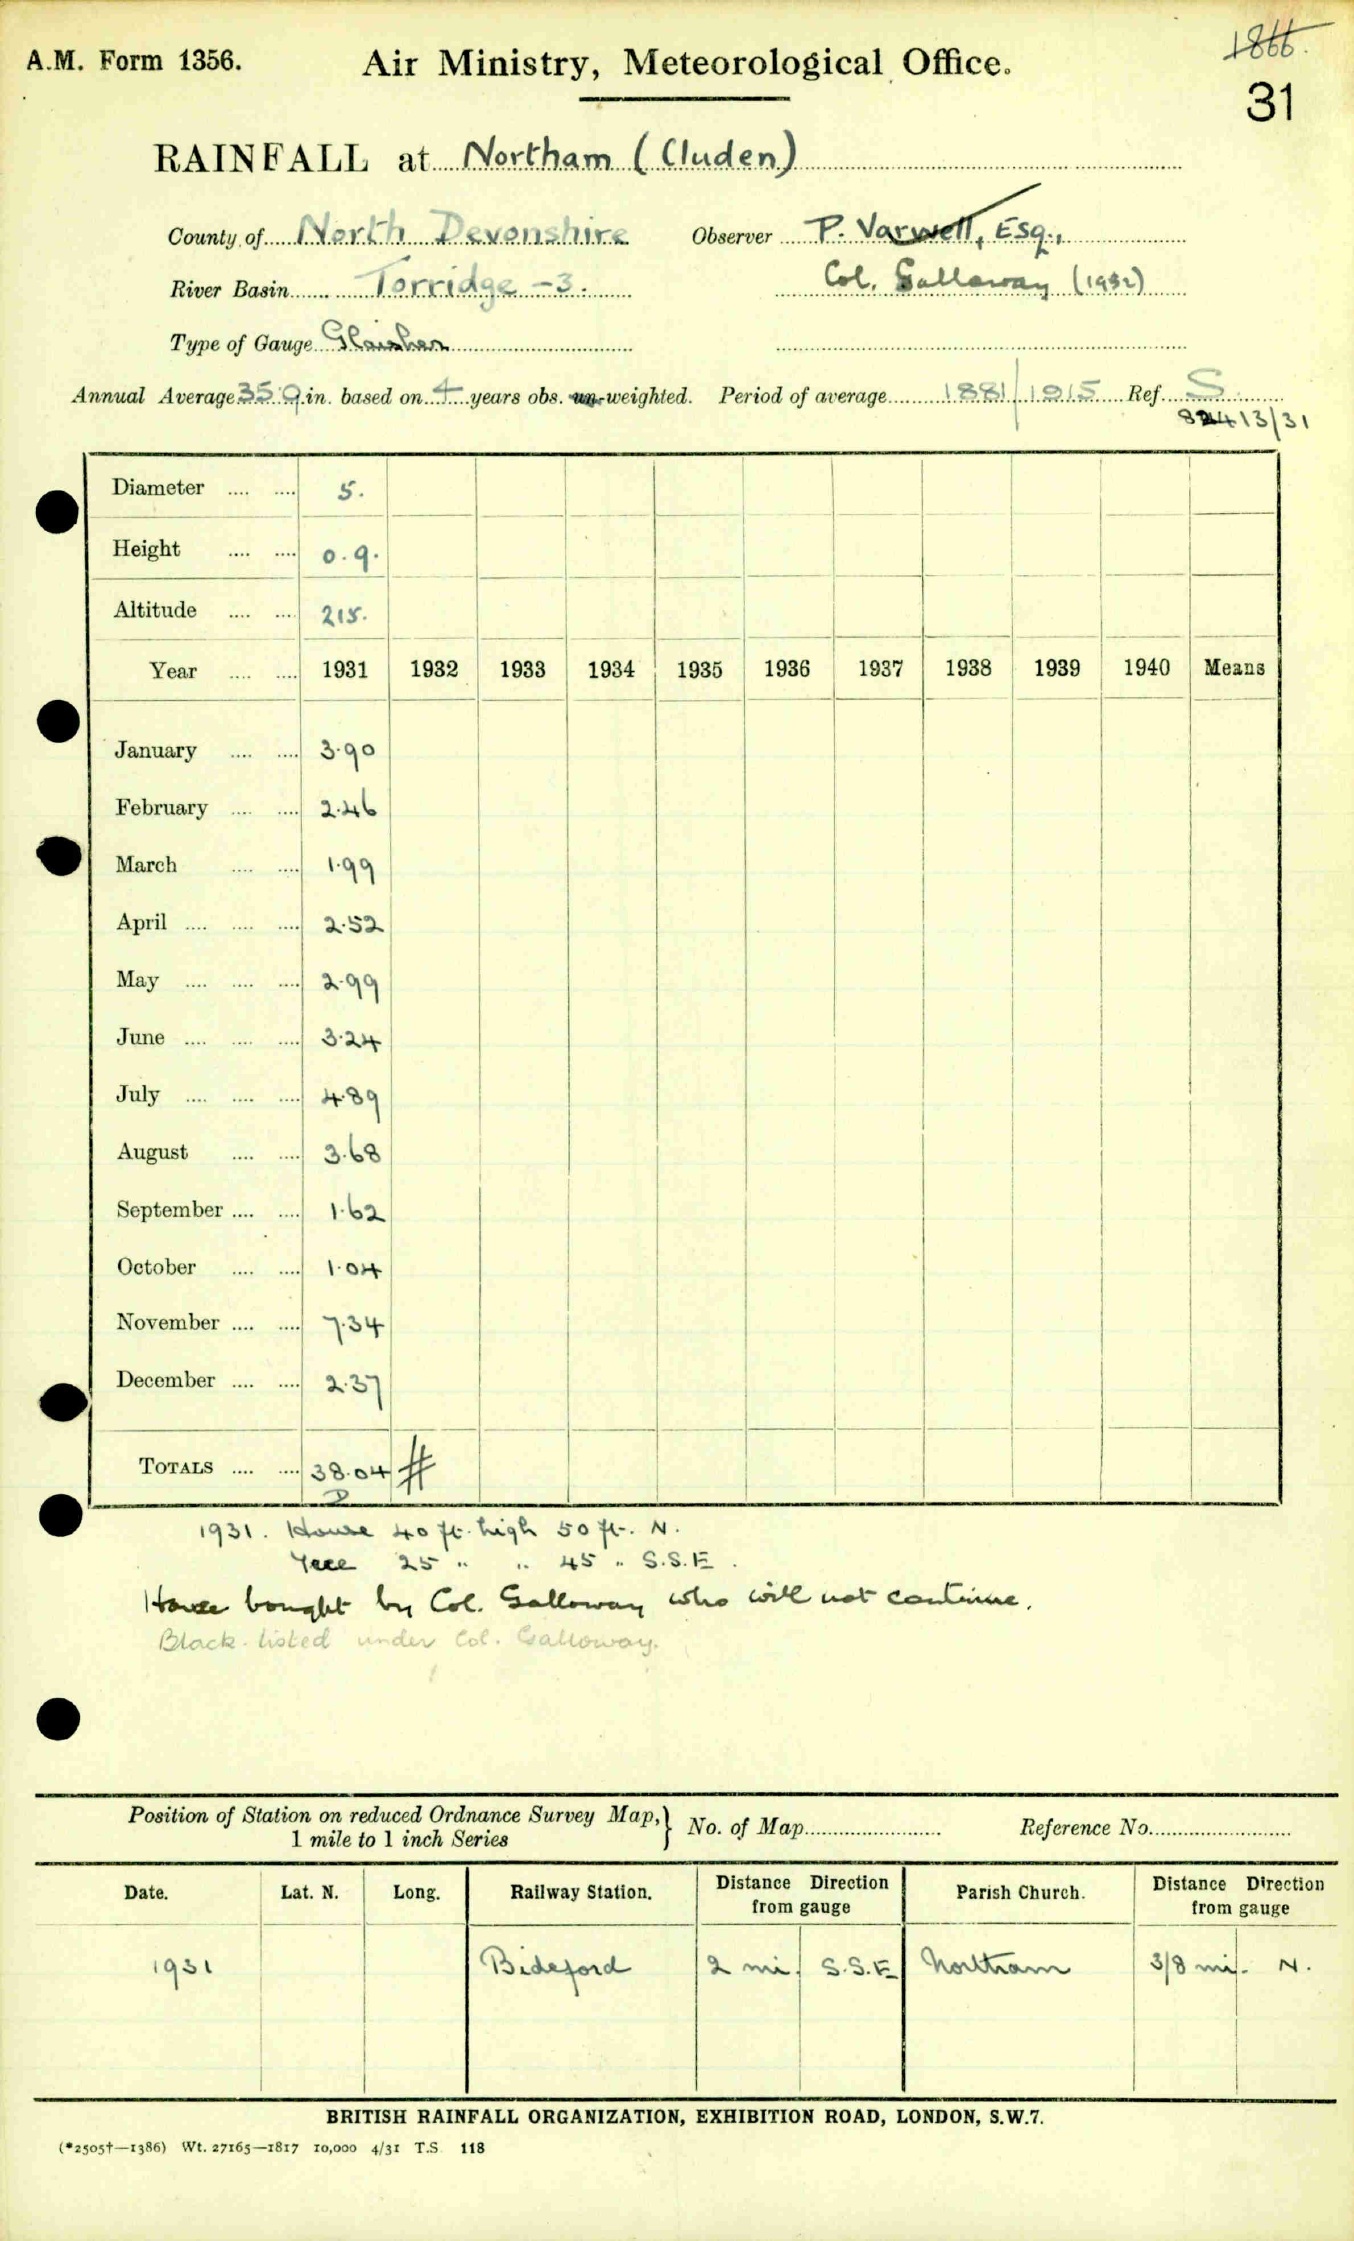 A.M. Form 1356.
Air Ministry, Meteorological Office.
1866.
31
RAINFALL at Northam (Cluden)
County of North Devonshire Observer P. Varwell, Esq.,
River Basin Torridge - 3. Col. Galloway (1932)
Type of Gauge Glaisher
Annual Average 35.9 in. based on 4 years obs. un-weighted. Period of average 1881/1915 Ref. S
13/31
Diameter .... .... 5.
Height .... .... 0.9.
Altitude .... .... 215.
Year .... .... 1931 1932 1933 1934 1935 1936 1937 1938 1939 1940 Means
January .... .... 3.90
February .... .... 2.46
March .... .... 1.99
April .... .... .... 2.52
May .... .... .... 2.99
June .... .... .... 3.24
July .... .... .... 4.89
August .... .... 3.68
September .... .... 1.62
October .... .... 1.04
November .... .... 7.34
December .... .... 2.37
TOTALS .... .... 38.04 #
D
1931. House 40 ft. high 50 ft. N.
Tree 25 " " 45 " S.S.E.
House bought by Col. Galloway who will not continue.
Black-listed under Col. Galloway.
Position of Station on reduced Ordnance Survey Map,} No. of Map Reference No.
1 mile to 1 inch Series
Date. Lat. N. Long. Railway Station. Distance Direction from gauge Parish Church. Distance Direction from gauge
1931 Bideford 2 mi. S.S.E Northam 3/8 mi. N.
BRITISH RAINFALL ORGANIZATION, EXHIBITION ROAD, LONDON, S.W.7.
(*2505†—1386) Wt. 27165—1817 10,000 4/31 T.S. 118